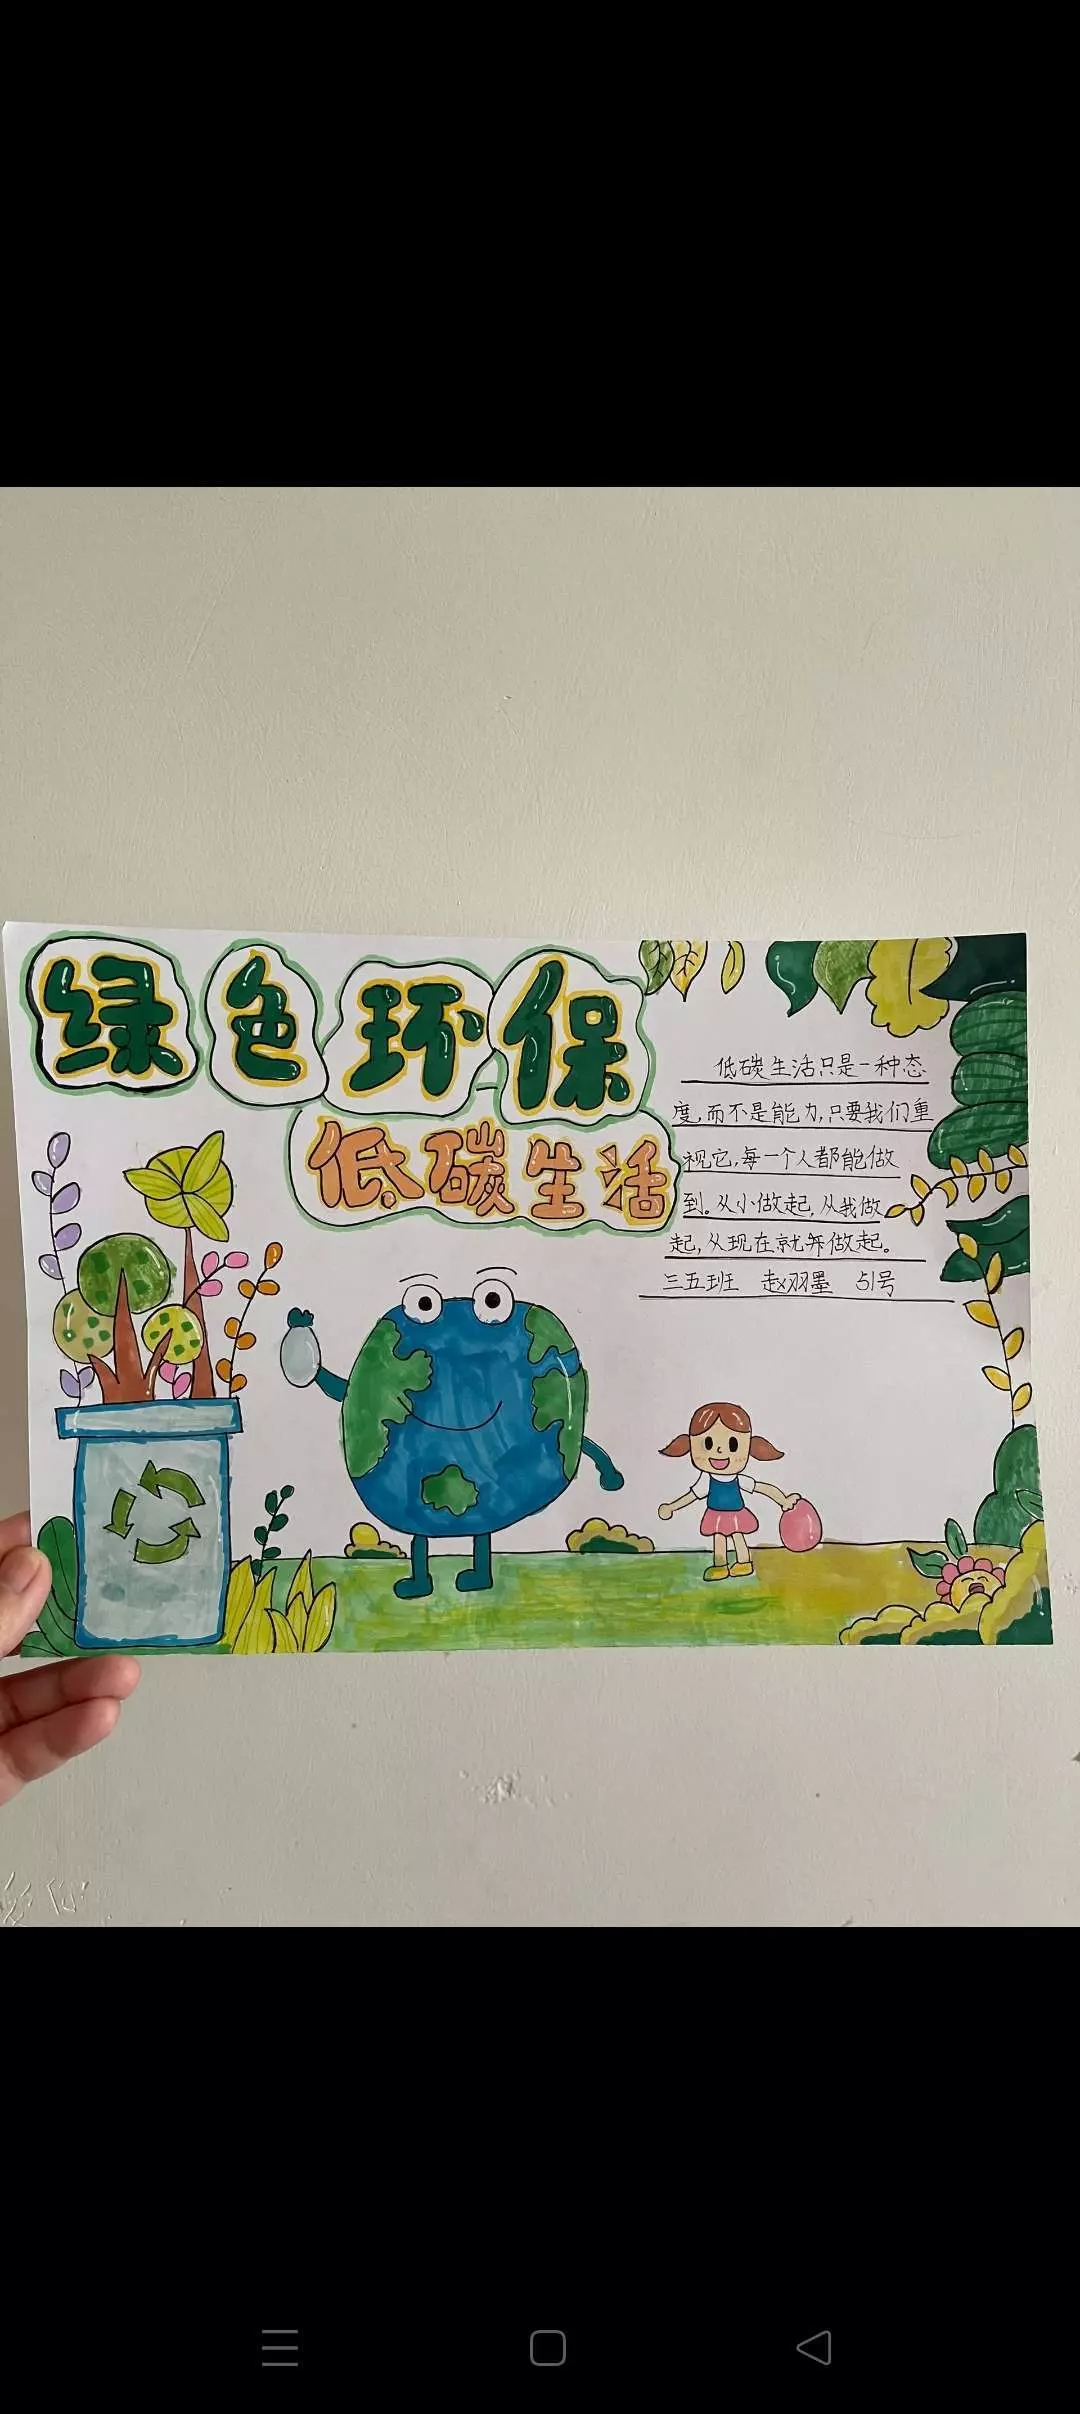 绿色环保
低碳生活
低碳生活只是一种态
度,而不是能力,只要我们重
视它,每一个人都能做
到。从小做起,从我做
起,从现在就开做起。
三五班 赵羽墨 51号